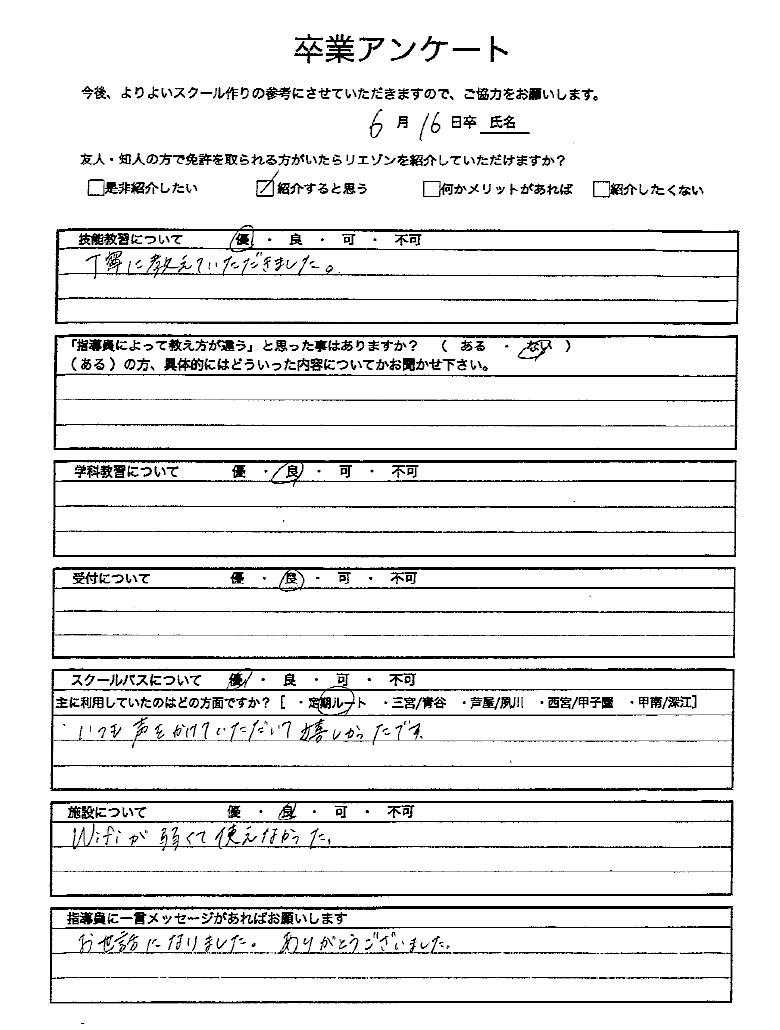 卒業アンケート
今後、よりよいスクール作りの参考にさせていただきますので、ご協力をお願いします。
6月16日卒 氏名
友人・知人の方で免許を取られる方がいたらリエゾンを紹介していただけますか？
□是非紹介したい ☑紹介すると思う □何かメリットがあれば □紹介したくない
技能教習について 優 ・ 良 ・ 可 ・ 不可
丁寧に教えていただきました。
「指導員によって教え方が違う」と思った事はありますか？ （ ある ・ ない ）
（ある）の方、具体的にはどういった内容についてかお聞かせ下さい。
学科教習について 優 ・ 良 ・ 可 ・ 不可
受付について 優 ・ 良 ・ 可 ・ 不可
スクールバスについて 優 ・ 良 ・ 可 ・ 不可
主に利用していたのはどの方面ですか？［ ・定期ルート ・三宮/青谷 ・芦屋/夙川 ・西宮/甲子園 ・甲南/深江］
いつも声をかけていただいて嬉しかったです
施設について 優 ・ 良 ・ 可 ・ 不可
Wifiが弱くて使えなかった。
指導員に一言メッセージがあればお願いします
お世話になりました。 ありがとうございました。